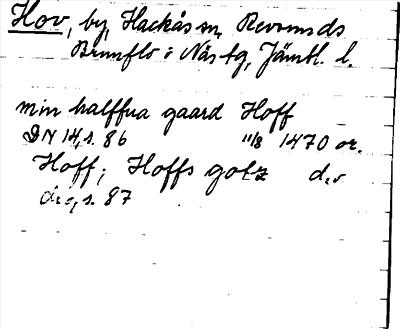 Hov, by, Hackås sn, Revsunds
Brunflo o Näs tg, Jämtl. l.
min halffua gaard Hoff
DN 14, s. 86 11/8 1470 or.
Hoff; Hoffs gotz d.o
d:o, s. 87